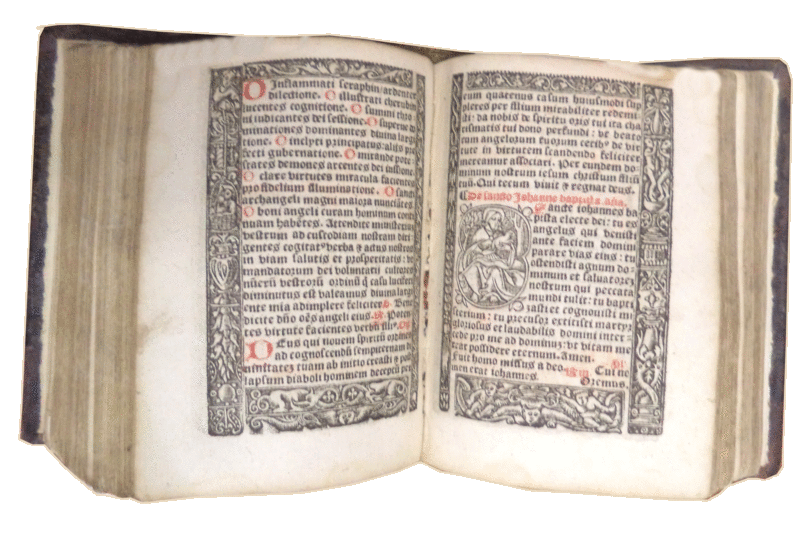 O Inflammati seraphin ardenter
dilectione. O illustrati cherubin
lucentes cognitione. O summi thro
ni iudicantes dei sessione. O superne do
minationes dominantes divina largi
tione. O inclyti principatus: aliis pre
fecti gubernatione. O mirande pote
states demones arcentes dei iussione.
O clare virtutes miracula facientes
pro fidelium illuminatione. O sancti
archangeli magni maiora nunciātes
O boni angeli curam hominum conti
nuam habētes. Attendite ministeriū
vestrum ad custodiam nostram diri
gentes cogitatꝰ verba ⁊ actus nostros
in viam salutis et prosperitatis: vt
mandatorum dei voluntatū cultores
nūerū vestrorū ordinū q̄ casu luciferi
diminutus est valeamus divina largi
ente mia adimplere feliciter. Bene
dicite dn̄o oēs angeli eius. Poten
tes virtute facientes verbū illiꝰ.
DEus qui novem spirituū ordines
ad cognoscendū sempiternam di
vinitatē tuam ab initio creasti ⁊ post
lapsum diaboli hominem deceptū per
eum quatenus casum huiusmodi sup
pleres per filium mirabiliter redemi
sti: da nobis de spiritu oris tui ita cha
rismatis tui dono perfundi: vt beato
rum angelorum tuorum cetibꝰ de vir
tute in virtutem scandendo feliciter
mereamur associari. Per eundem do
minum nostrum iesum christum filiū
tuū. Qui tecum vivit ⁊ regnat deus.
De sancto Johanne baptista. aña.
Sancte iohannes ba
pista electe dei: tu es
angelus qui venisti
ante faciem domini
parare vias eius: tu
ostendisti agnum do-
minum et salvatorē
nostrum qui peccata
mundi tulit: tu bapti
sasti et cognovisti mi
sterium: tu precursor extitisti martyr
gloriosus et laudabilis domini inter-
cede pro me ad dominū: vt vitam me
rear possidere eternum. Amen.
Fuit homo missus a deo. Cui no
men erat iohannes. Oremus.